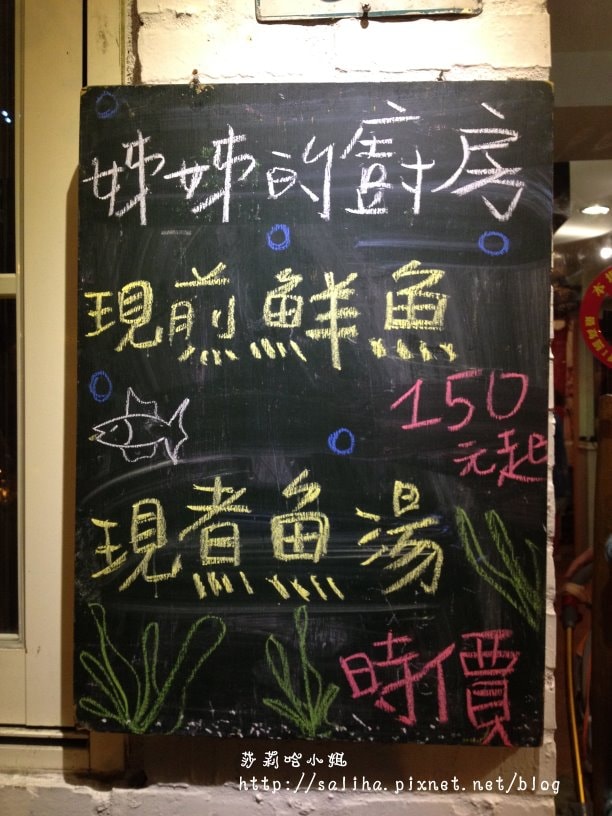 姊姊的廚房
現煎鮮魚
150
元起
現煮魚湯
時價
莎莉哈小姐
http://saliha.pixnet.net/blog